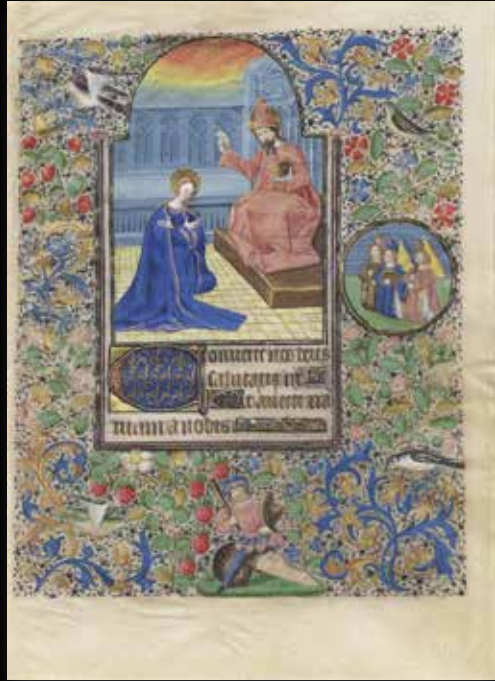 Conuerte nos deus
salutaris nr̃
Et auerte irā
tuam a nobis